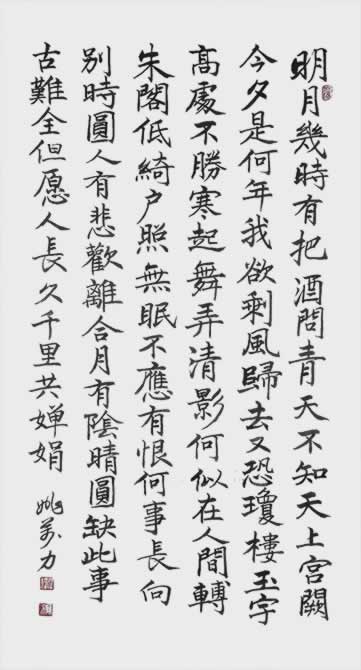 明月幾時有把酒問青天不知天上宮闕
今夕是何年我欲剩風歸去又恐瓊樓玉宇
髙處不勝寒起舞弄清影何似在人間轉
朱閣低綺户照無眠不應有恨何事長向
别時圓人有悲歡離合月有陰晴圓缺此事
古難全但愿人長久千里共嬋娟